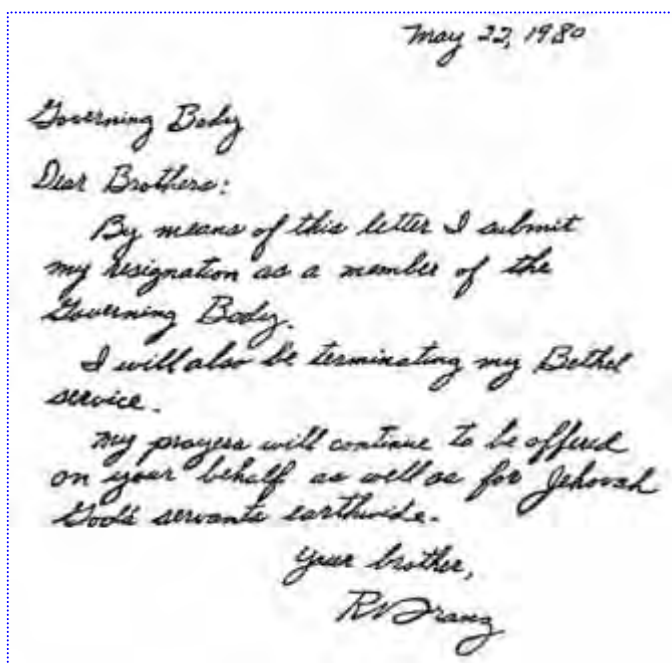 May 22, 1980
Governing Body
Dear Brothers:
By means of this letter I submit
my resignation as a member of the
Governing Body.
I will also be terminating my Bethel
service.
My prayers will continue to be offered
on your behalf as well as for Jehovah
God's servants earthwide.
Your brother,
RV Franz